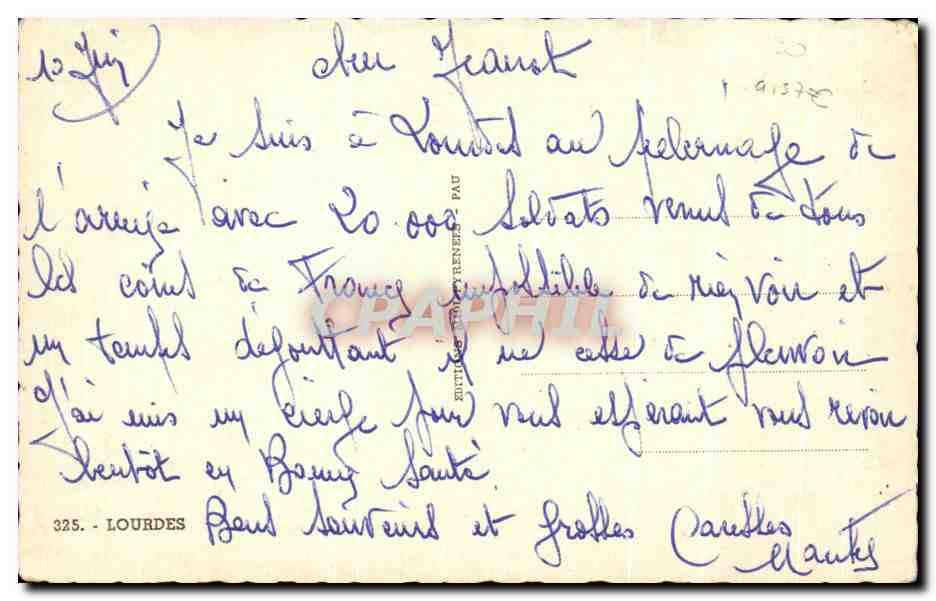 10 Juin
cher Jeanot
9137E
Je suis à Lourdes au pelernage de
l'armée avec 20.000 soldats venus de tous
les coins de France impossible de rien voir et
un temps dégouttant il ne cesse de pleuvoir
J'ai mis un cierge pour vous espérant vous revoir
bientôt en Bonne Santé
Bons souvenirs et grosses Caresses
325. - LOURDES
EDITIONS MIDI-PYRENEES - PAU
CPAPHIL